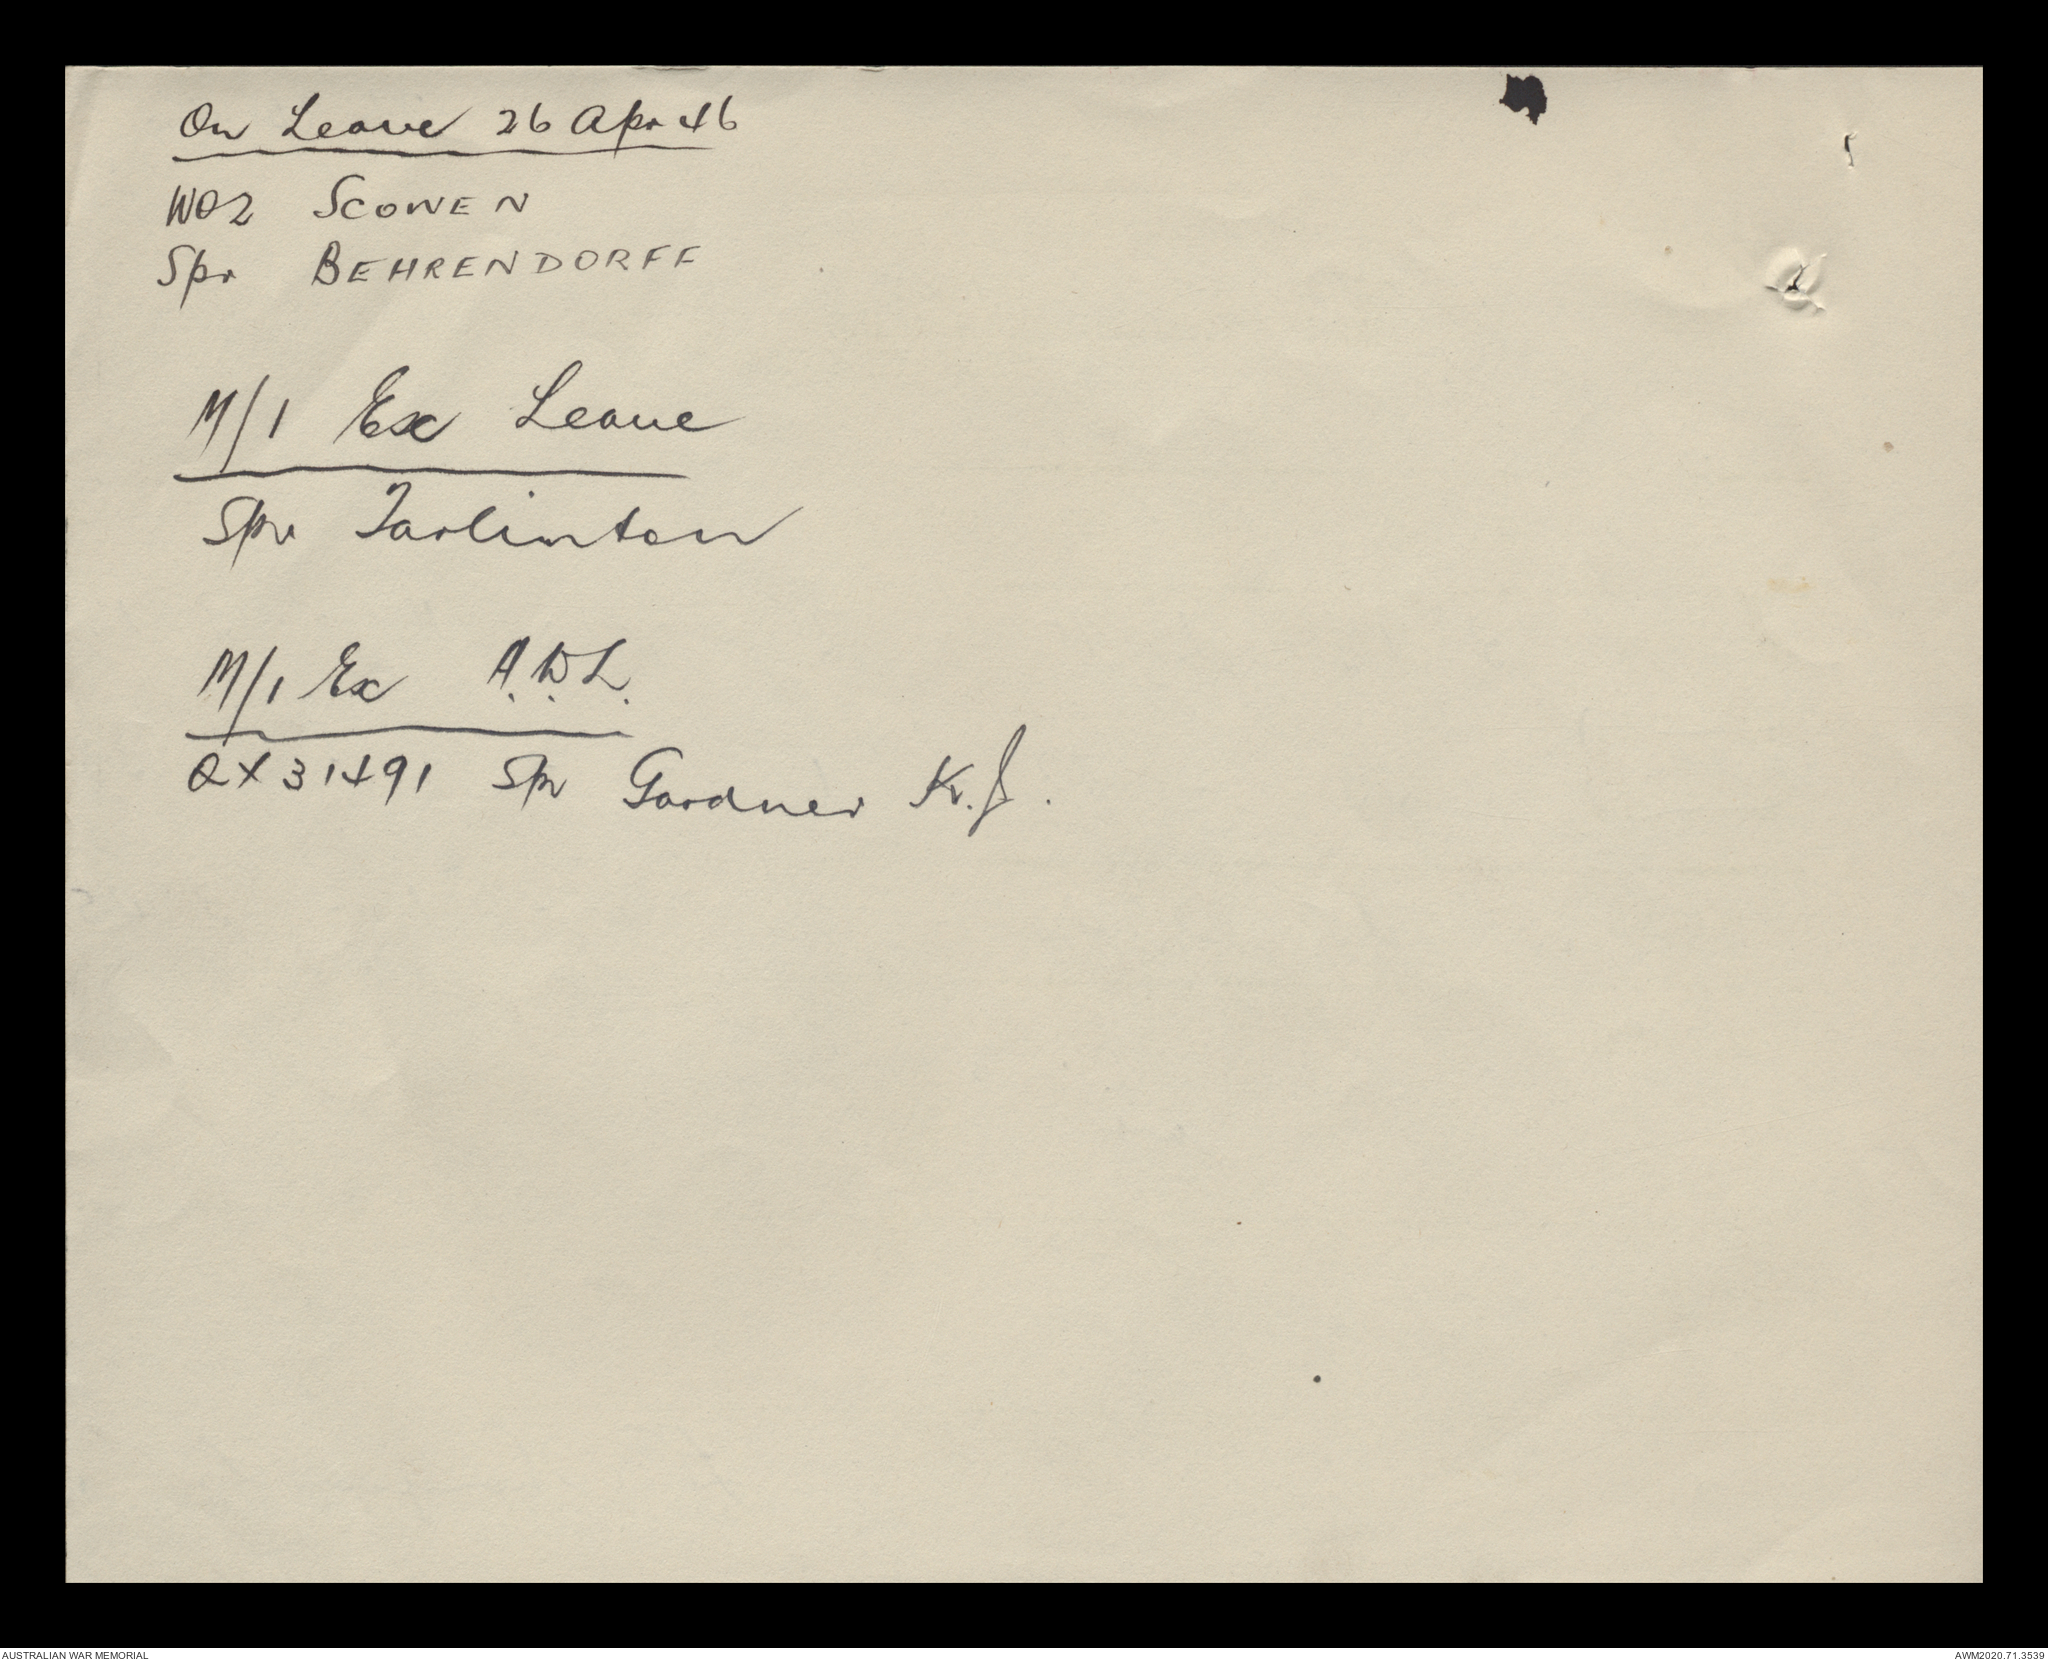 On Leave 26 Apr 46
WO2 SCOWEN
Spr BEHRENDORFF
M/I Ex Leave
Spr Tarlinton
M/I Ex A.W.L.
QX31491 Spr Gardner K.J.
AUSTRALIAN WAR MEMORIAL
AWM2020.71.3539